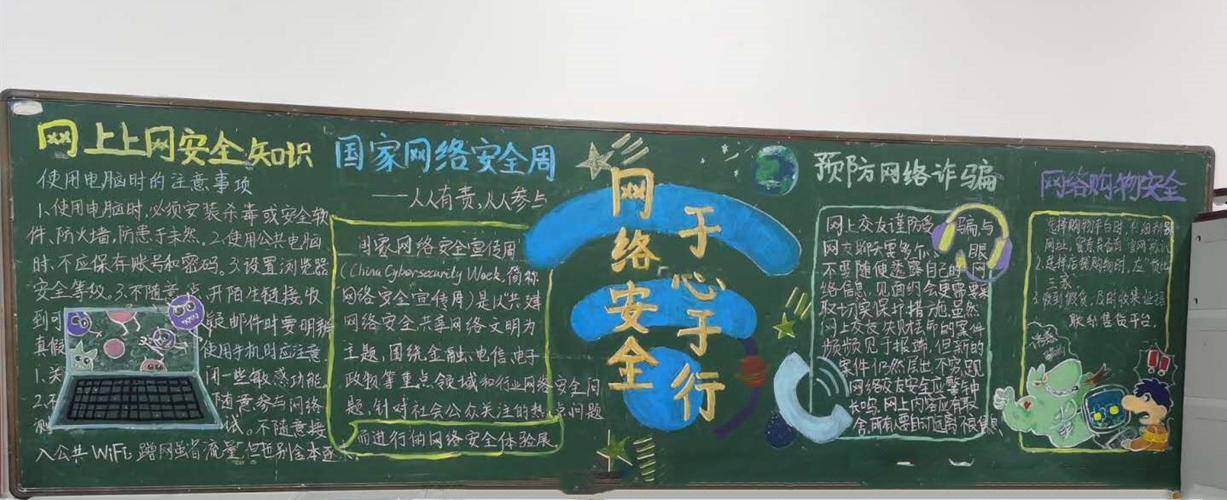 网上上网安全知识
使用电脑时的注意事项
1、使用电脑时,必须安装杀毒或安全软
件、防火墙,防患于未然。2、使用公共电脑
时,不应保存账号和密码。3、设置浏览器
安全等级。3、不随意点开陌生链接,收
到可疑邮件时要明辨
真假 使用手机时应注意
1、关闭一些敏感功能
2、不随意参与网络
测试。不随意接
入公共WiFi,蹭网虽省流量
国家网络安全周
——人人有责,人人参与
国家网络安全宣传周
(China Cybersecurity Week,简称
网络安全宣传周)是以"共建
网络安全,共享网络文明"为
主题,围绕金融、电信、电子
政物等重点领域和行业网络安全问
题,针对社会公众关注的热点问题
而进行的网络安全体验展
网络安全
于心于行
预防网络诈骗
网上交友谨防受骗,与
网友
不要随便透露自己的
络信息,见面约会更需要采
取切实保护措施。虽然
网上交友失败
频频见于报端,但新的
案件仍然层出不穷,可见
网络交友安全应警钟
长鸣,网上内容应有取
舍,所有
网络购物安全
选择购物平台时,
网址,
选择店铺购物时,应"货比
三家"
收到假货,及时收集证据
联系售货平台。
诱惑
!!!